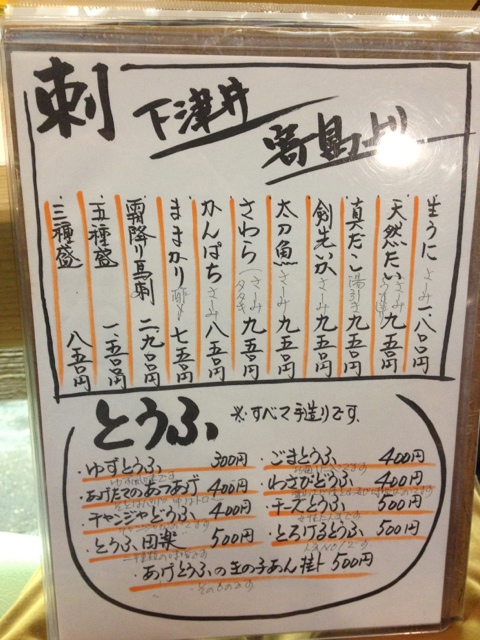 刺
下津井
寄島より
生うに さしみ 一、八〇〇円
天然たい さしみ 九五〇円
真だこ 湯引き 九五〇円
剣先いか さしみ 九五〇円
太刀魚 さしみ 九五〇円
さわら さしみ タタキ 九五〇円
かんぱち さしみ 八五〇円
ままかり 酢 七五〇円
霜降り馬刺 二、九〇〇円
五種盛 一、五〇〇円
三種盛 八五〇円
とうふ ※すべて手造りです。
・ゆずとうふ 300円
・あげたてのあつあげ 400円
・チャンジャどうふ 400円
・とうふ田楽 500円
・ごまとうふ 400円
・わさびどうふ 400円
・チーズとうふ 500円
・とろけるとうふ 500円
・あげとうふの玉の子あん掛け 500円